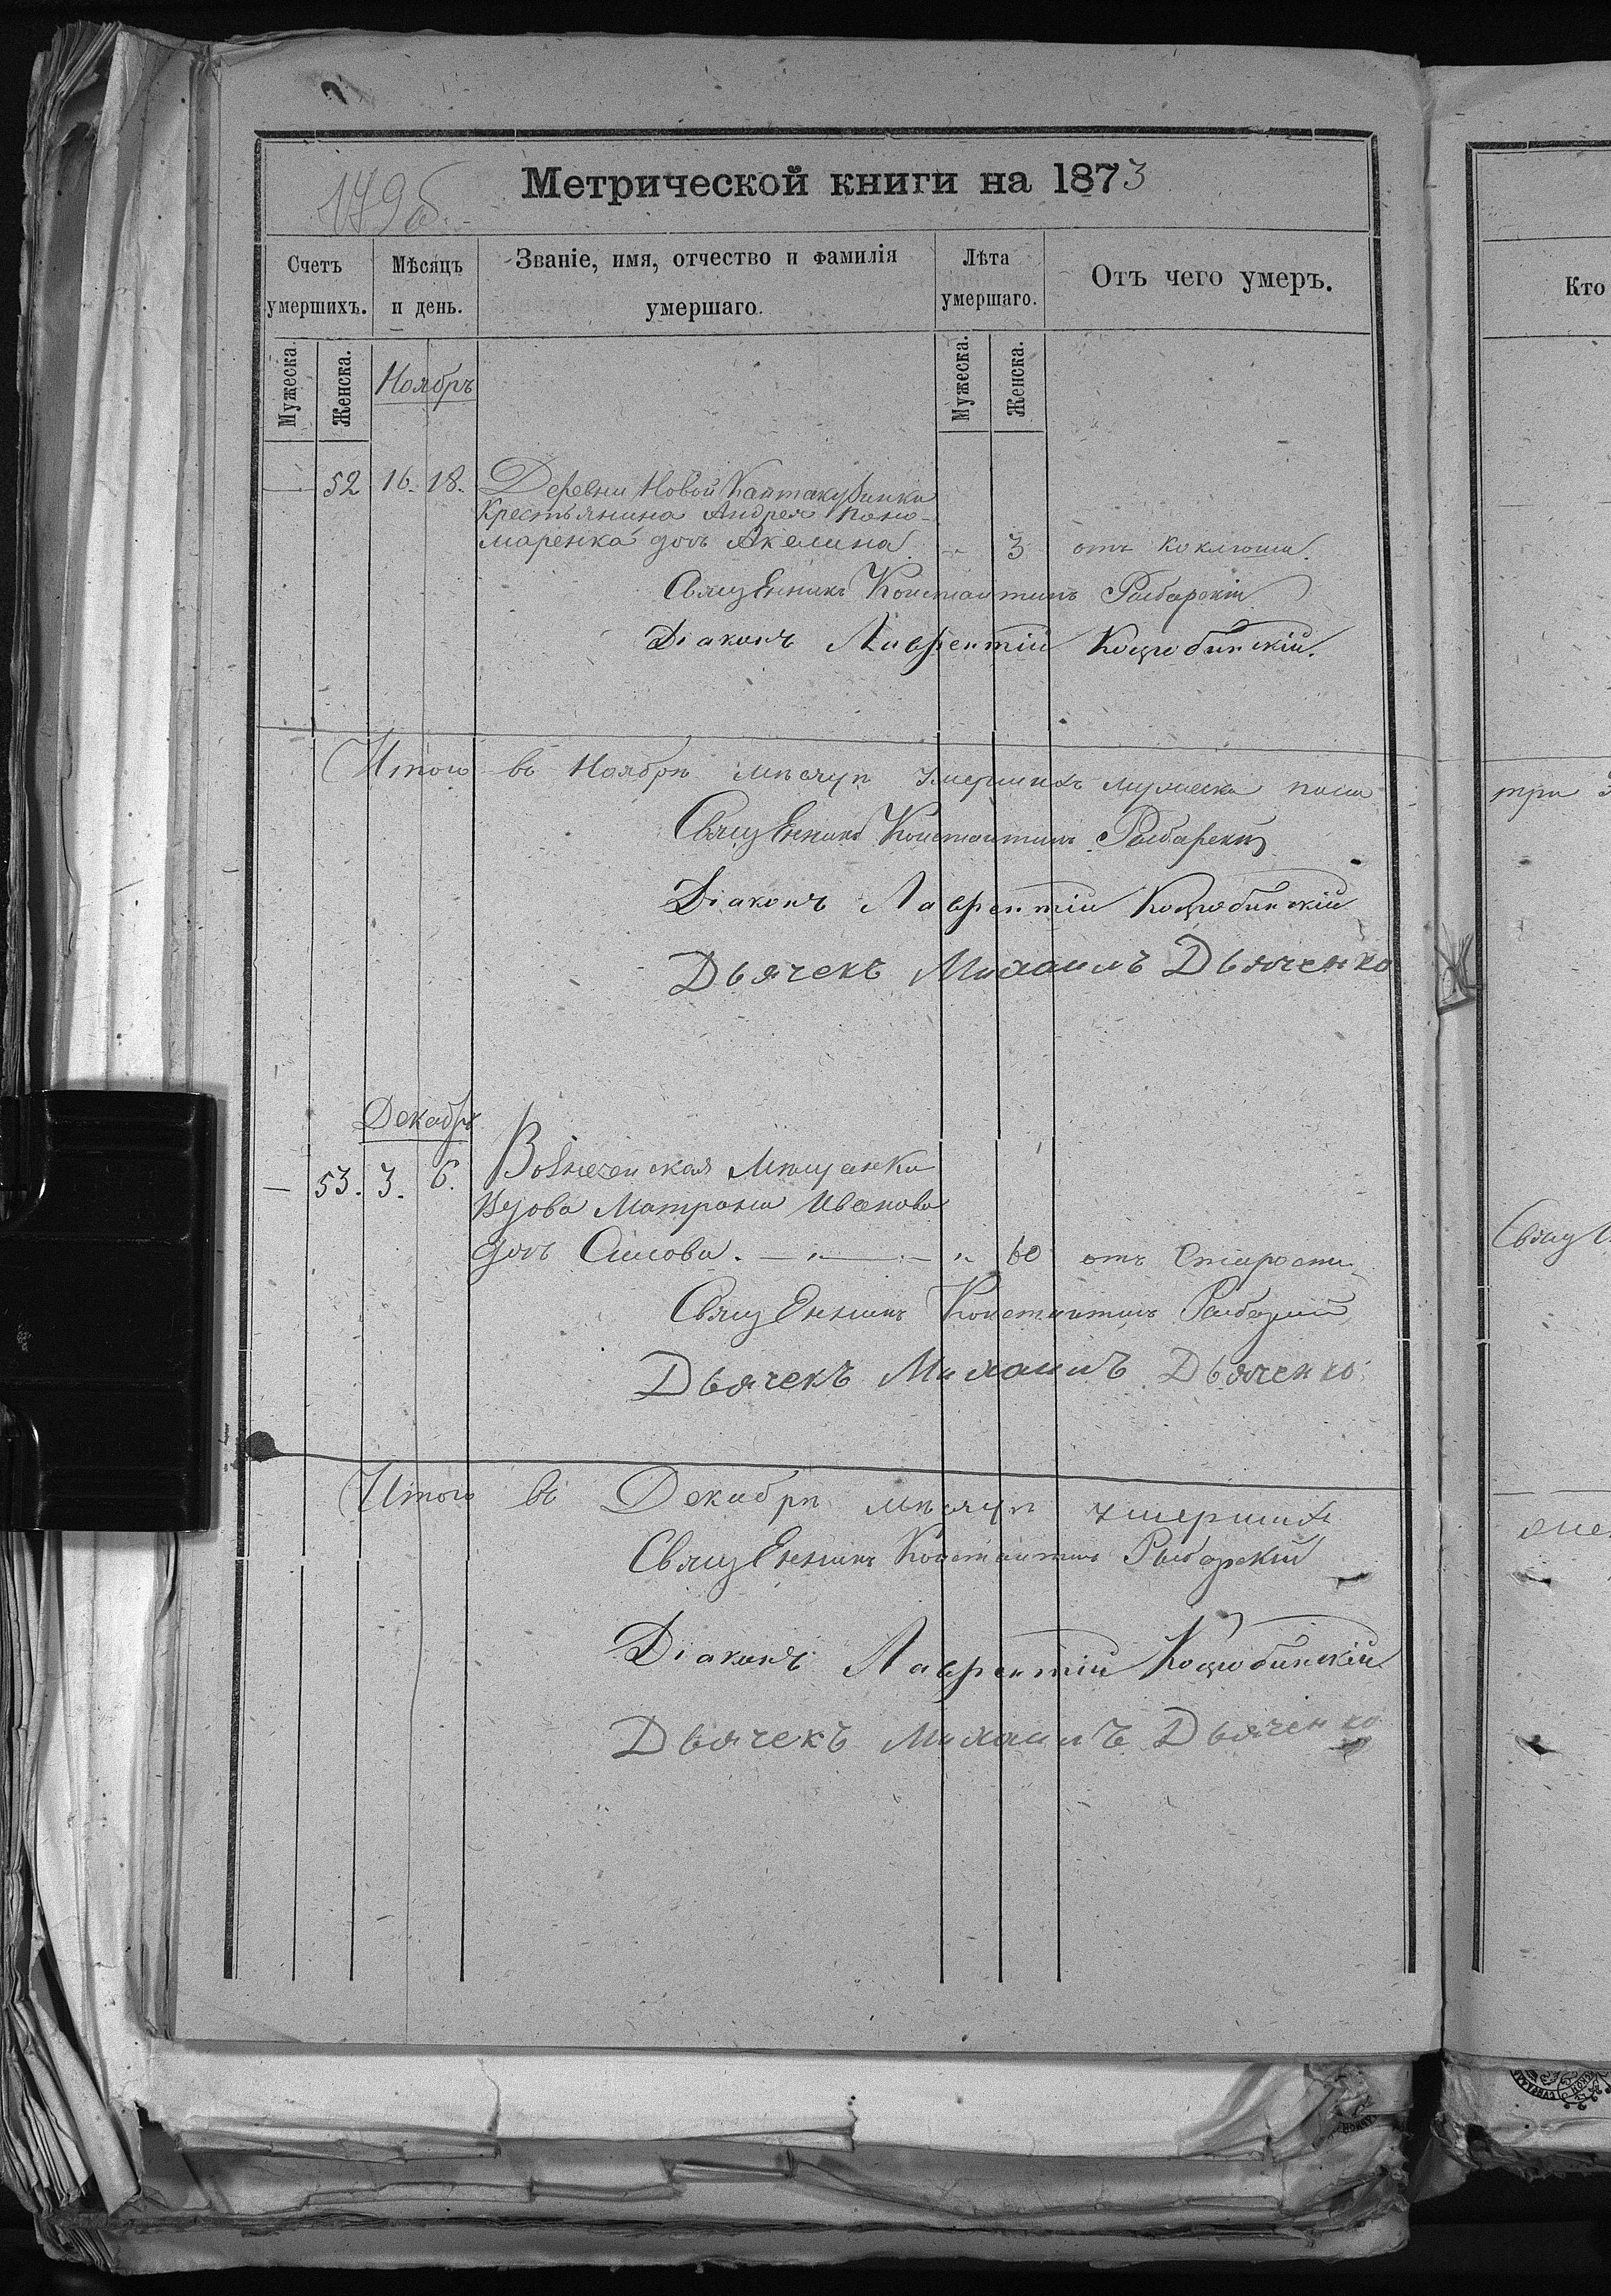 Метрической книги на 1873
179об.
Счетъ умершихъ.
Мѣсяцъ и день.
Званіе, имя, отчество и фамилія умершаго.
Лѣта умершаго.
Отъ чего умеръ.
Кто
Мужеска.
Женска.
Ноябрь
Мужеска.
Женска.
— 52 16. 18. Деревни Новой Кантакузинки
Крестьянина Андрея Поно-
маренка дочь Акелина „ 3 отъ коклюша.
Священникъ Константинъ Рыбарскій
Діаконъ Лаврентій Коцюбинскій.
Итого въ Ноябрѣ мѣсяцѣ умершихъ мужеска пола
три
Священникъ Константинъ Рыбарскій
Діаконъ Лаврентій Коцюбинскій
Дьячекъ Михаилъ Дьяченко
Декабрь
— 53. 3. 6. Вознесенская Мѣщанка
Вдова Матрона Иванова
дочь — „ — „ 60 отъ Старости
Священникъ Константинъ Рыбарскій
Дьячекъ Михаилъ Дьяченко
Итого въ Декабрѣ мѣсяцѣ умершихъ
Священникъ Константинъ Рыбарскій
Діаконъ Лаврентій Коцюбинскій
Дьячекъ Михаилъ Дьяченко